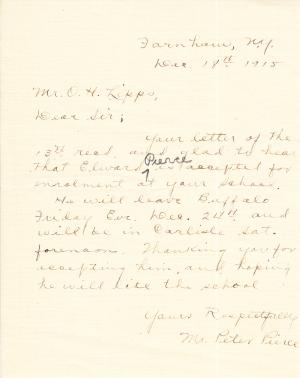 Farnham, N.Y.
Dec. 18th 1915
Mr. O. H. Lipps,
Dear Sir;
Your letter of the
13th recd. and glad to hear
Pierce
that Edward is accepted for
enrolment at your school.
He will leave Buffalo
Friday Eve. Dec. 24th and
will be in Carlisle Sat.
forenoon. Thanking you for
accepting him, and hoping
he will like the school
Yours Respectfully
Mr. Peter Pierce